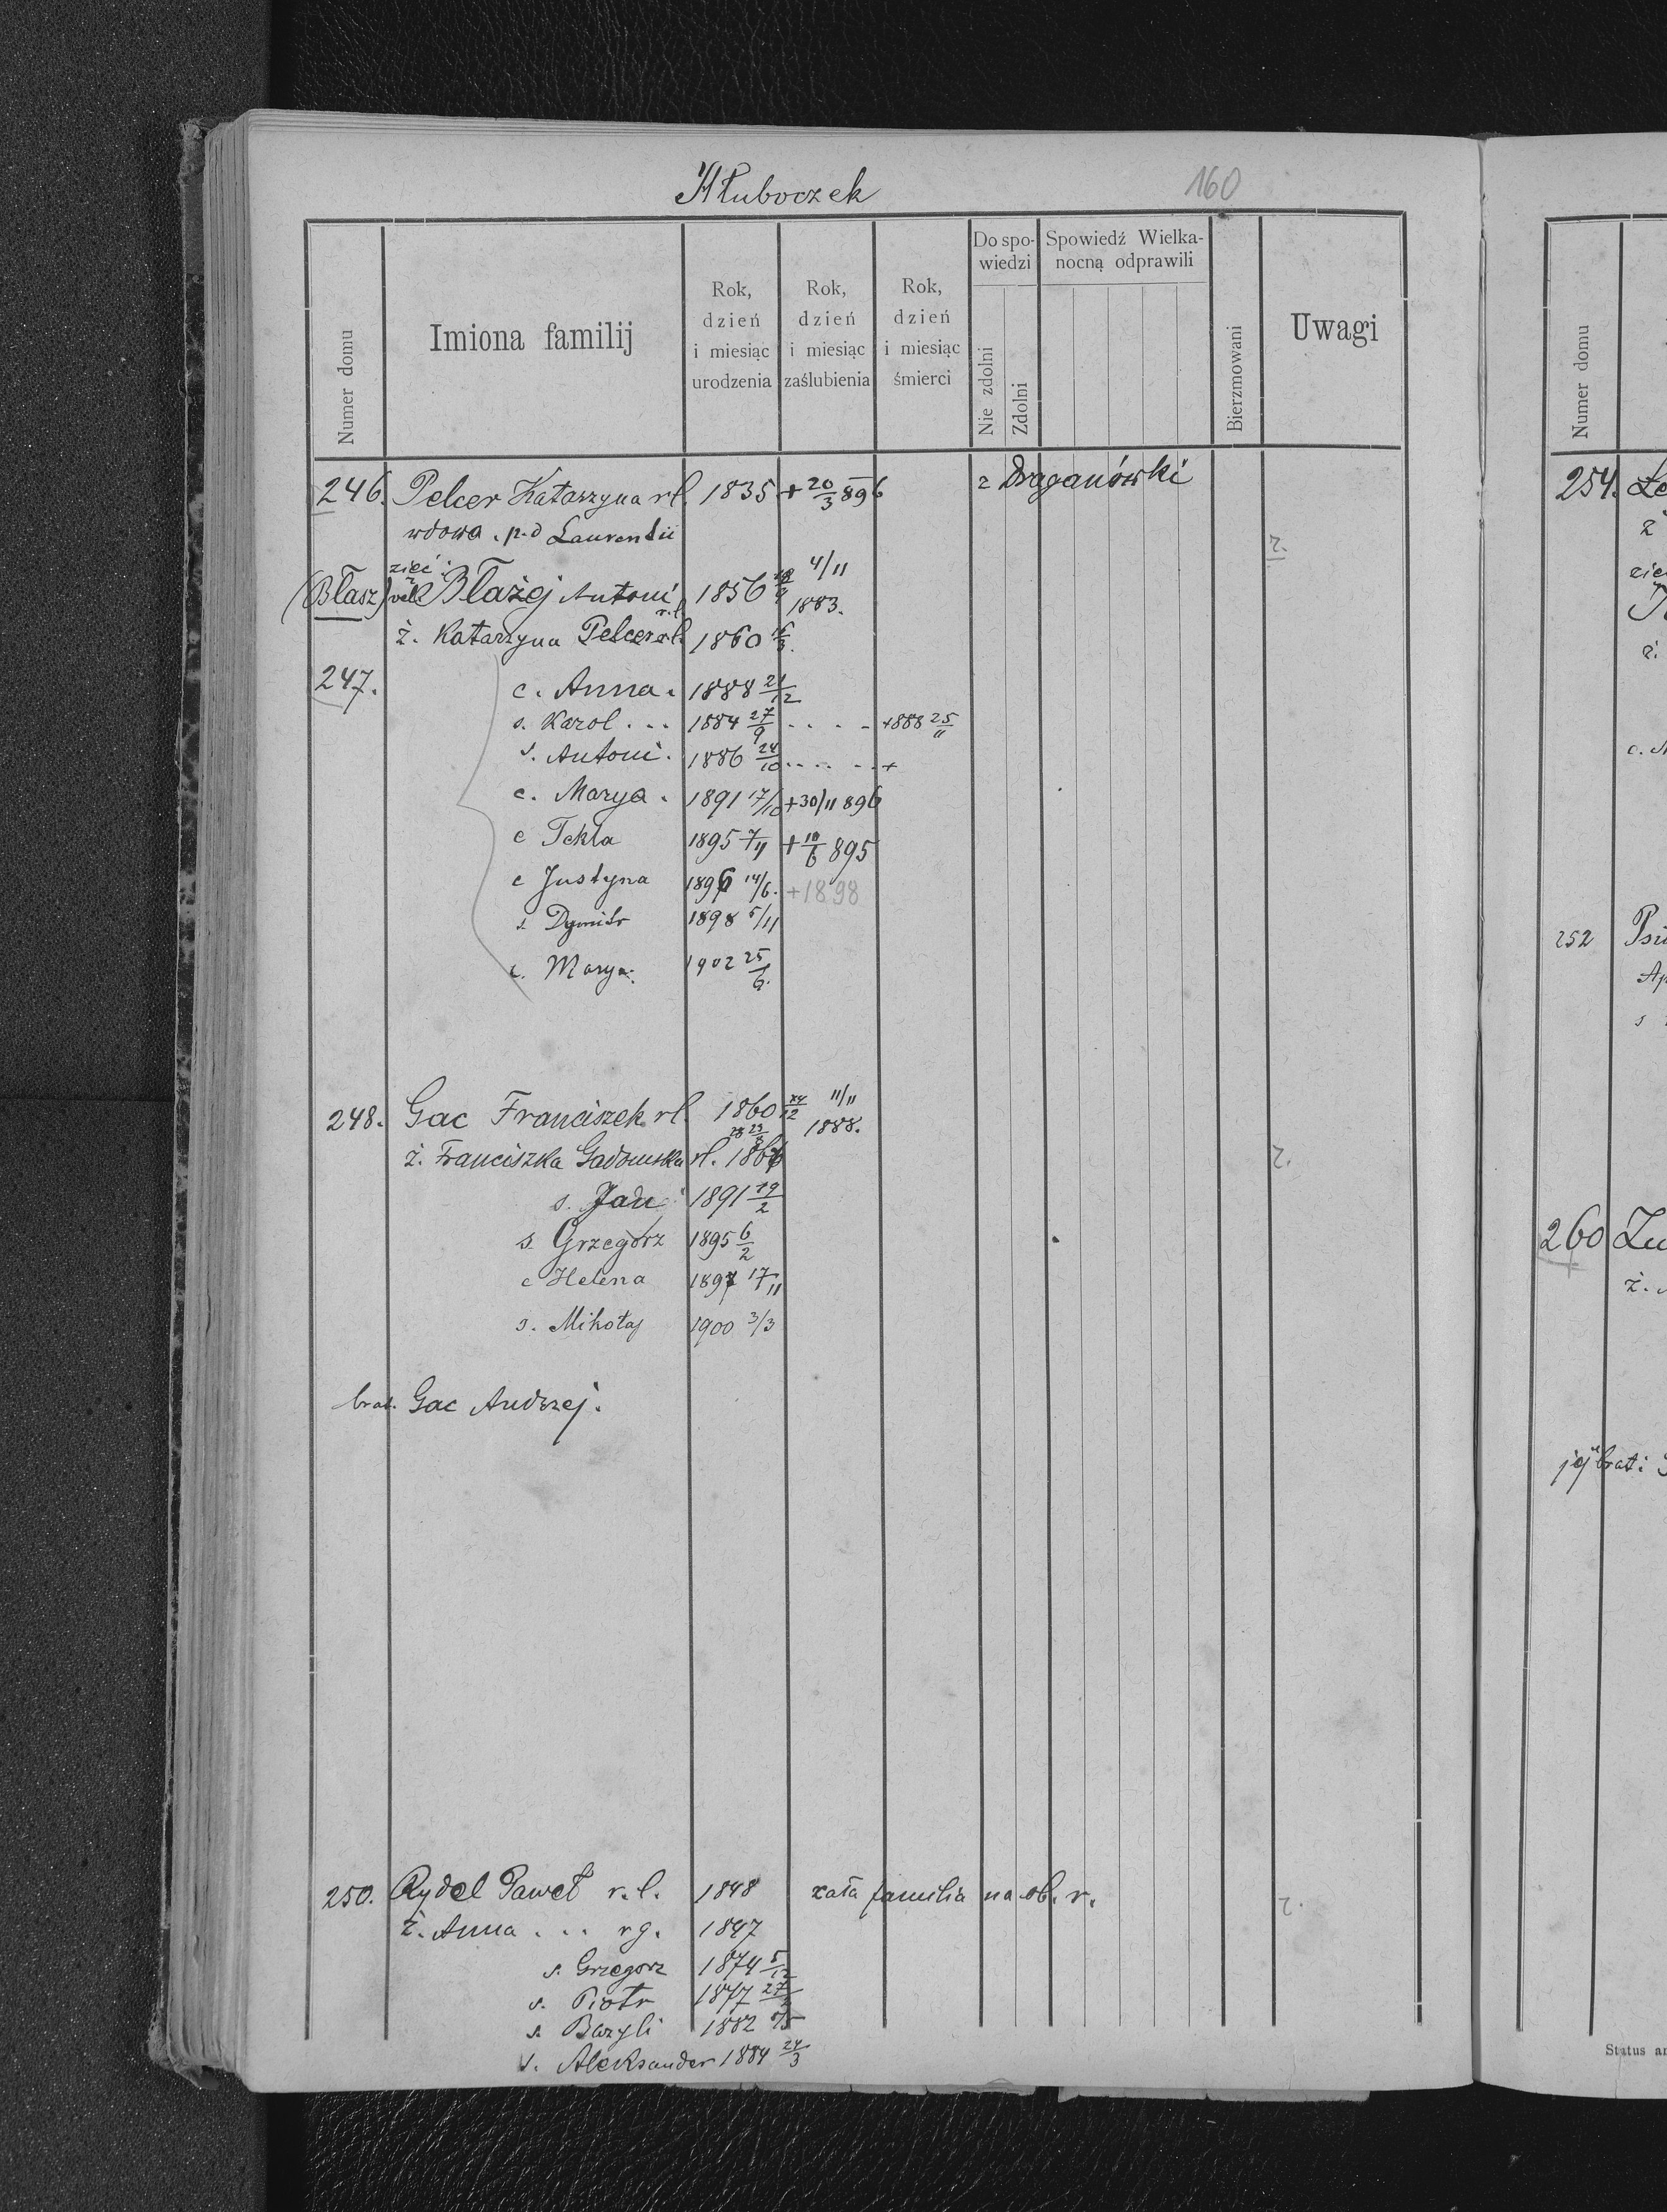 Hłuboczek 160
Numer domu
Imiona familij
Rok, dzień i miesiąc urodzenia
Rok, dzień i miesiąc zaślubienia
Rok, dzień i miesiąc śmierci
Do spowiedzi
Nie zdolni
Zdolni
Spowiedź Wielkanocną odprawili
Bierzmowani
Uwagi
246. Pelcer Katarzyna rł. 1835 + 20/3 896 z Draganówki
wdowa . p.d Laurentii
r.
zięć :
(Błasz) vel Błażej Antoni r.ł. 1856 4/11 1883.
ż. Katarzyna Pelcer rł. 1860
247.
c. Anna . 1888 21/12
s. Karol . . . 1884 27/9 . . . . +888 25/11
s. Antoni . 1886 24/10 . . . . . . +
c. Marya . 1891 17/10 +30/11 896
c Tekla 1895 7/4 + 10/6 895
c Justyna 1896 14/6. +1898
s. Dymitr 1898 5/11
c. Marya. 1902 25/6.
248. Gac Franciszek rł. 1860 24/12 11/11 1888.
ż. Franciszka Gadomska rł. 1866
r.
s. Jan 1891 19/2
s. Grzegorz 1895 6/2
c Helena 1897 17/11
s. Mikołaj 1900 3/3
brat. Gac Andrzej.
250. Rydel Paweł r.ł. 1848 cała familia na ob. r.
r.
ż. Anna . . . rg. 1847
s. Grzegorz 1874 5/12
s. Piotr 1877
s. Bazyli 1882
s. Aleksander 1884 24/3
Numer domu
254.
ż
252
s
260
ż.
jej brat: